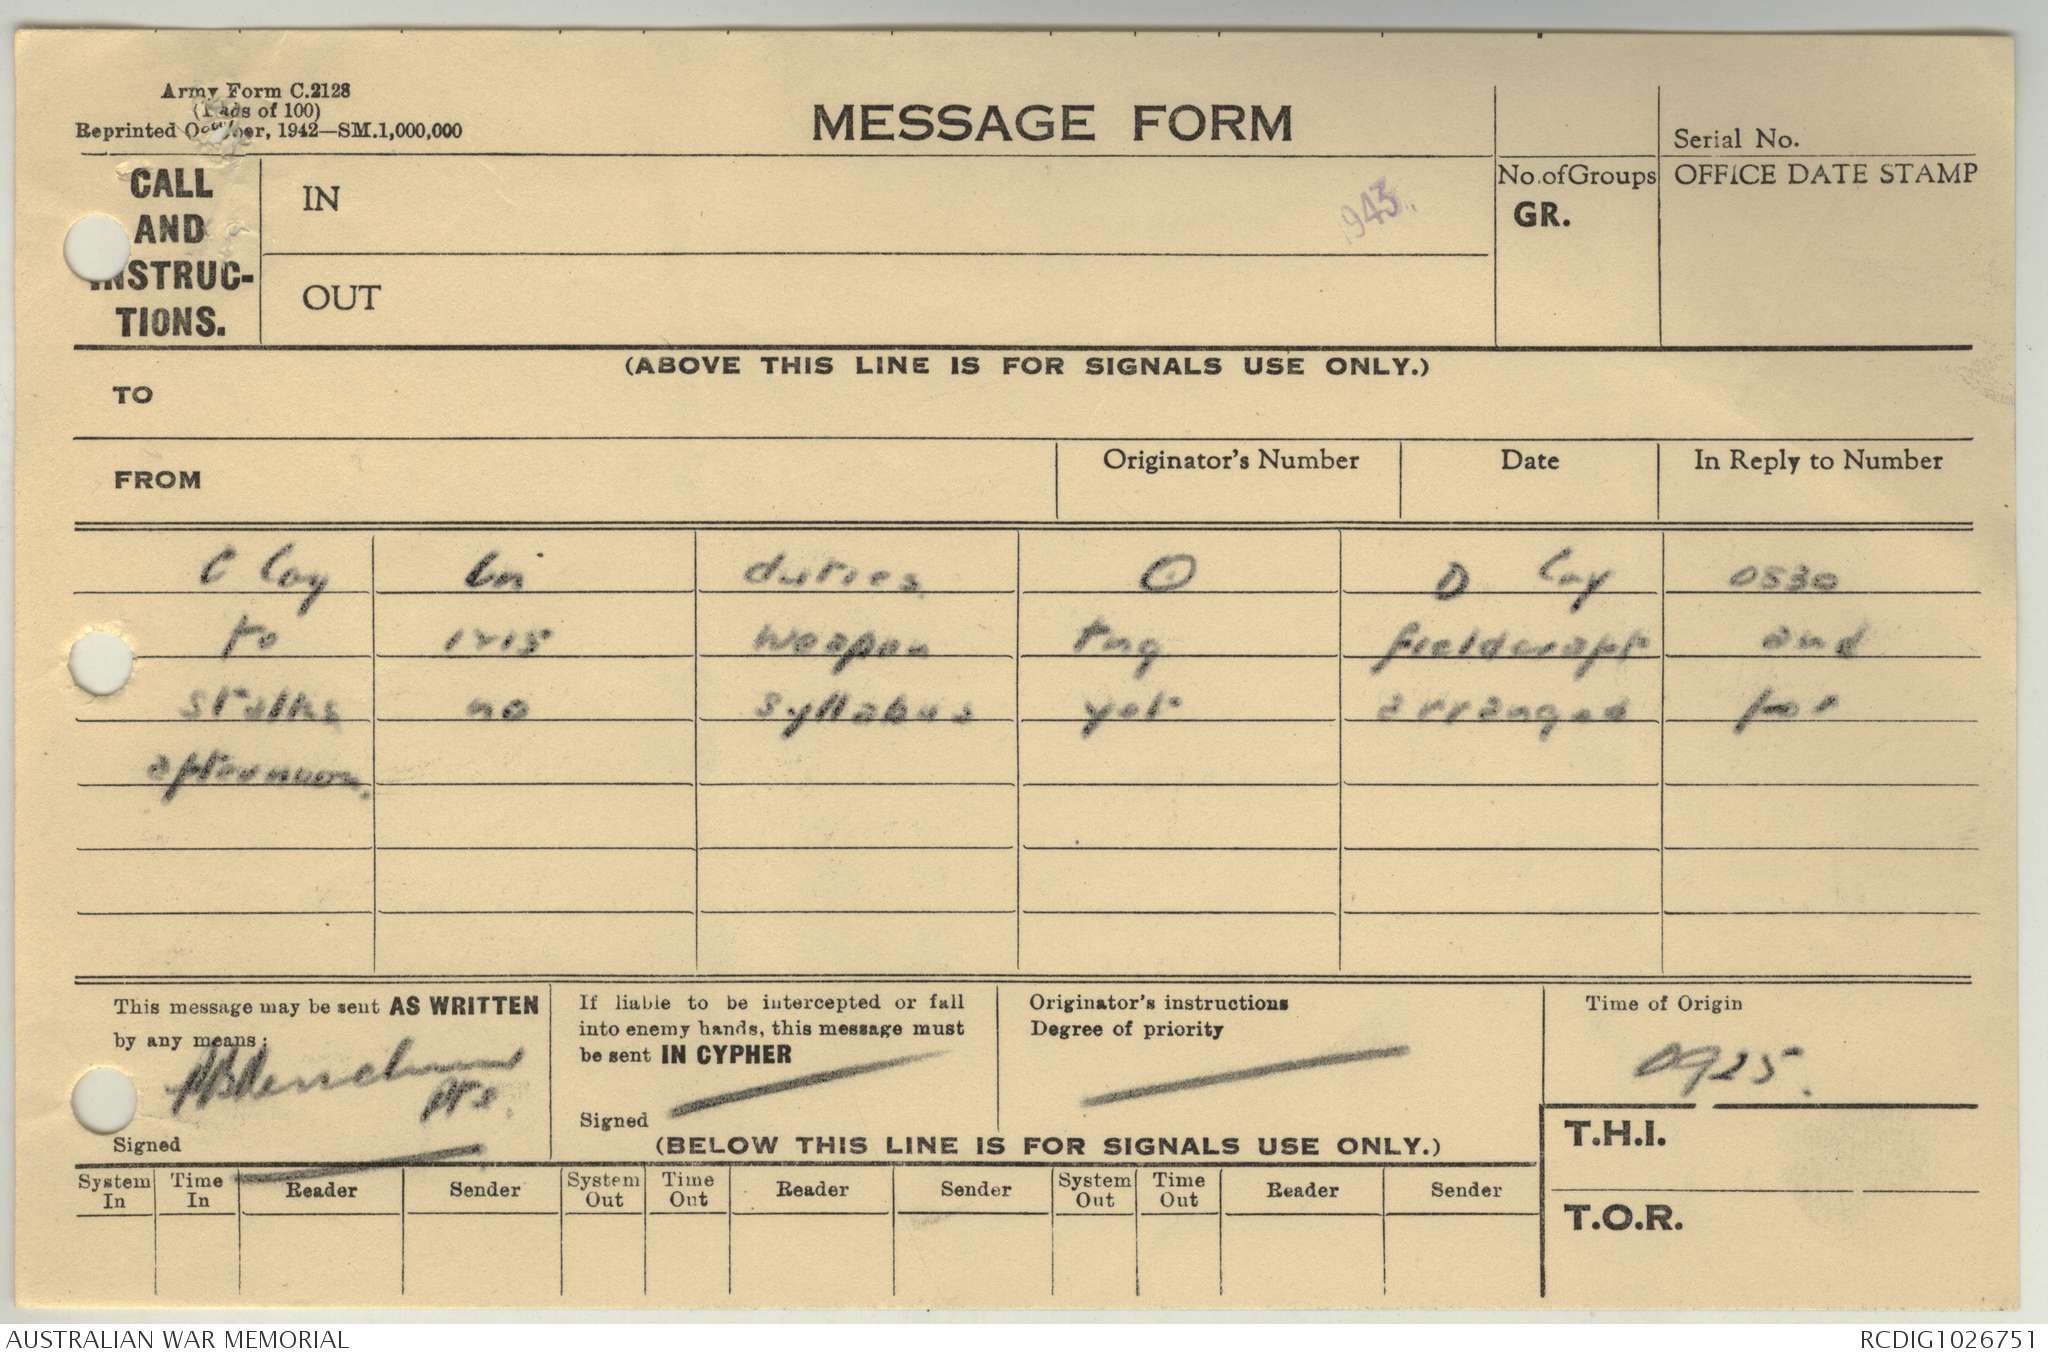 Army Form C.2128
(Pads of 100)
Reprinted October, 1942—SM.1,000,000
MESSAGE FORM
Serial No.
CALL AND INSTRUC-TIONS.
IN
943
No. of Groups
GR.
OFFICE DATE STAMP
OUT
(ABOVE THIS LINE IS FOR SIGNALS USE ONLY.)
TO
FROM
Originator's Number
Date
In Reply to Number
C Coy duties O D Coy 0530
to 1215 weapon tng fieldcraft and
stalks no syllabus yet arranged for
afternoon.
This message may be sent AS WRITTEN
by any means:
Signed
If liable to be intercepted or fall
into enemy hands, this message must
be sent IN CYPHER
Signed
Originator's instructions
Degree of priority
Time of Origin
0925.
(BELOW THIS LINE IS FOR SIGNALS USE ONLY.)
T.H.I.
T.O.R.
System In
Time In
Reader
Sender
System Out
Time Out
Reader
Sender
System Out
Time Out
Reader
Sender
AUSTRALIAN WAR MEMORIAL
RCDIG1026751